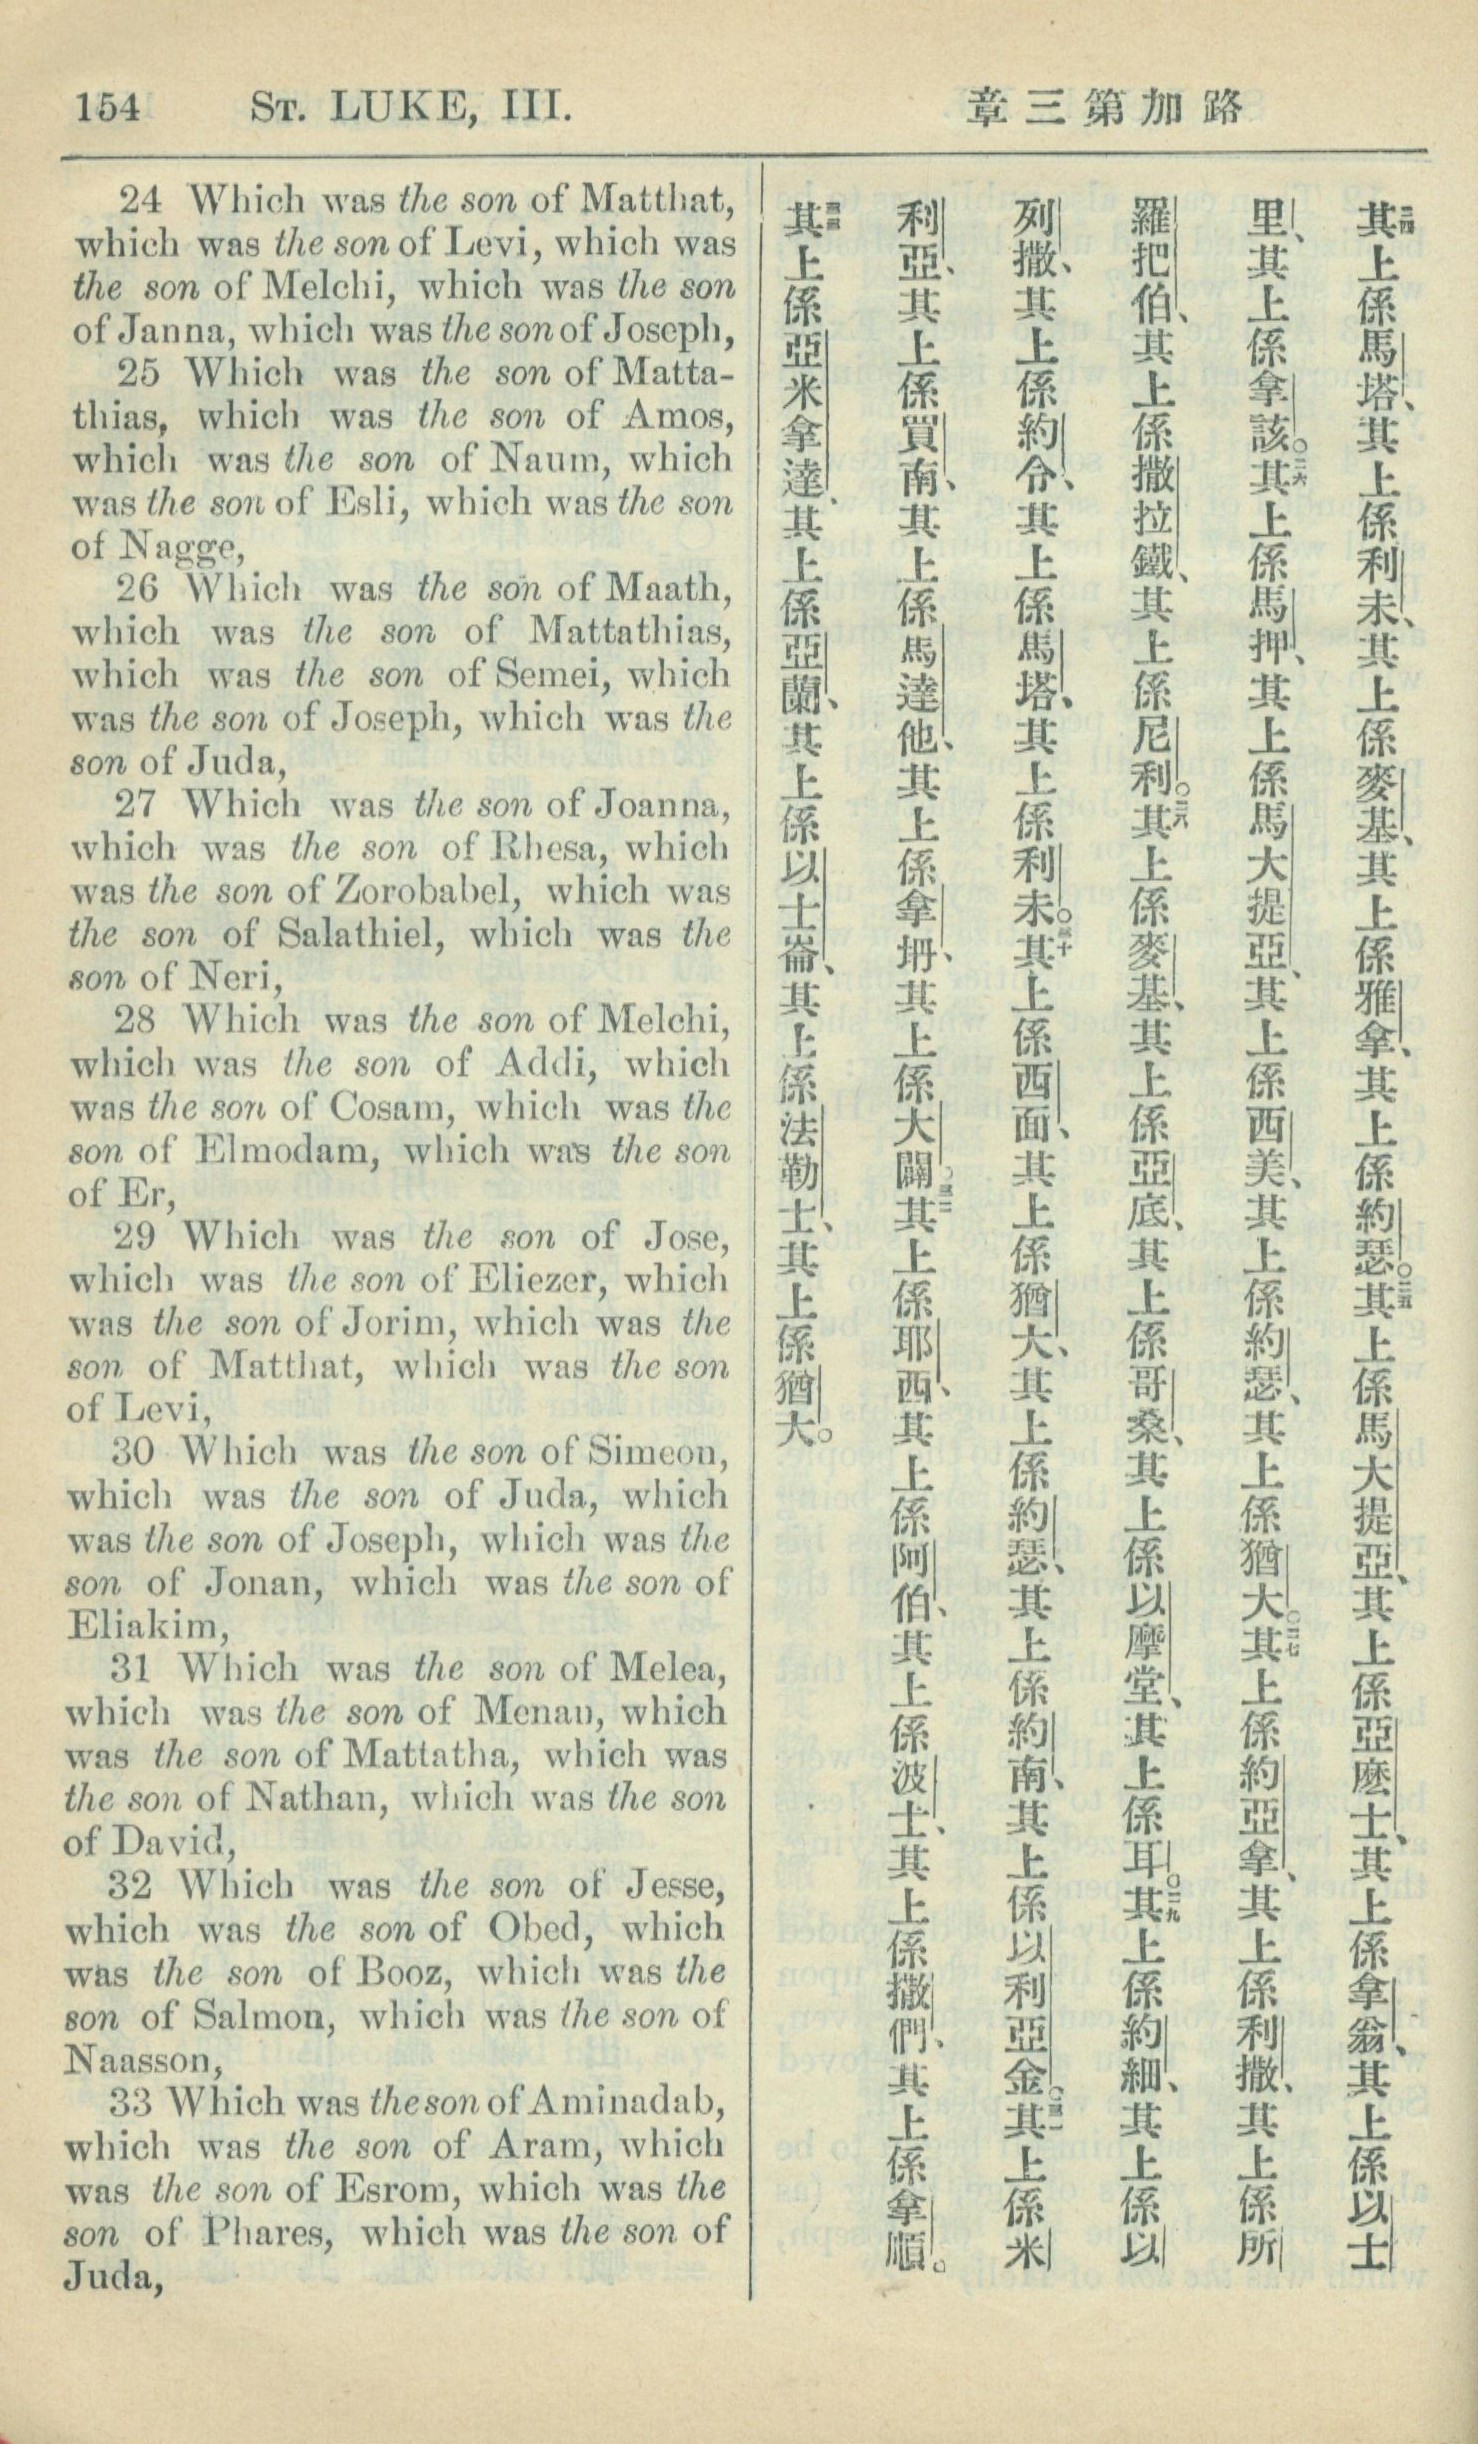 154 St. LUKE, III.
章三第加路
24 Which was the son of Matthat,
which was the son of Levi, which was
the son of Melchi, which was the son
of Janna, which was the son of Joseph,
25 Which was the son of Matta-
thias, which was the son of Amos,
which was the son of Naum, which
was the son of Esli, which was the son
of Nagge,
26 Which was the son of Maath,
which was the son of Mattathias,
which was the son of Semei, which
was the son of Joseph, which was the
son of Juda,
27 Which was the son of Joanna,
which was the son of Rhesa, which
was the son of Zorobabel, which was
the son of Salathiel, which was the
son of Neri,
28 Which was the son of Melchi,
which was the son of Addi, which
was the son of Cosam, which was the
son of Elmodam, which was the son
of Er,
29 Which was the son of Jose,
which was the son of Eliezer, which
was the son of Jorim, which was the
son of Matthat, which was the son
of Levi,
30 Which was the son of Simeon,
which was the son of Juda, which
was the son of Joseph, which was the
son of Jonan, which was the son of
Eliakim,
31 Which was the son of Melea,
which was the son of Menan, which
was the son of Mattatha, which was
the son of Nathan, which was the son
of David,
32 Which was the son of Jesse,
which was the son of Obed, which
was the son of Booz, which was the
son of Salmon, which was the son of
Naasson,
33 Which was the son of Aminadab,
which was the son of Aram, which
was the son of Esrom, which was the
son of Phares, which was the son of
Juda,
二四其上係馬塔、其上係利未、其上係麥基、其上係雅拿、其上係約瑟。二五其上係馬大提亞、其上係亞麽士、其上係拿翁、其上係以士
里、其上係拿該。二六其上係馬押、其上係馬大提亞、其上係西美、其上係約瑟、其上係猶大。二七其上係約亞拿、其上係利撒、其上係所
羅把伯、其上係撒拉鐵、其上係尼利。二八其上係麥基、其上係亞底、其上係哥桑、其上係以摩堂、其上係耳。二九其上係約細、其上係以
列撒、其上係約令、其上係馬塔、其上係利未。三十其上係西面、其上係猶大、其上係約瑟、其上係約南、其上係以利亞金。三一其上係米
利亞、其上係買南、其上係馬達他、其上係拿坍、其上係大闢。三二其上係耶西、其上係阿伯、其上係波士、其上係撒們、其上係拿順。
三三其上係亞米拿達、其上係亞蘭、其上係以士崙、其上係法勒士、其上係猶大。